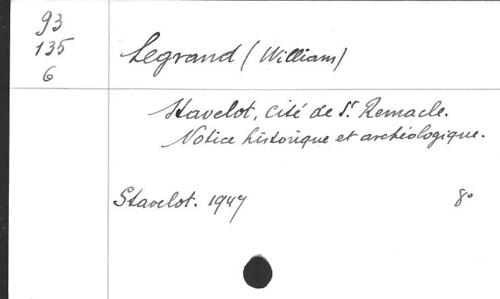 93
135
6
Legrand (William)
Stavelot, Cité de St Remacle.
Notice historique et archéologique.
Stavelot. 1947
8°